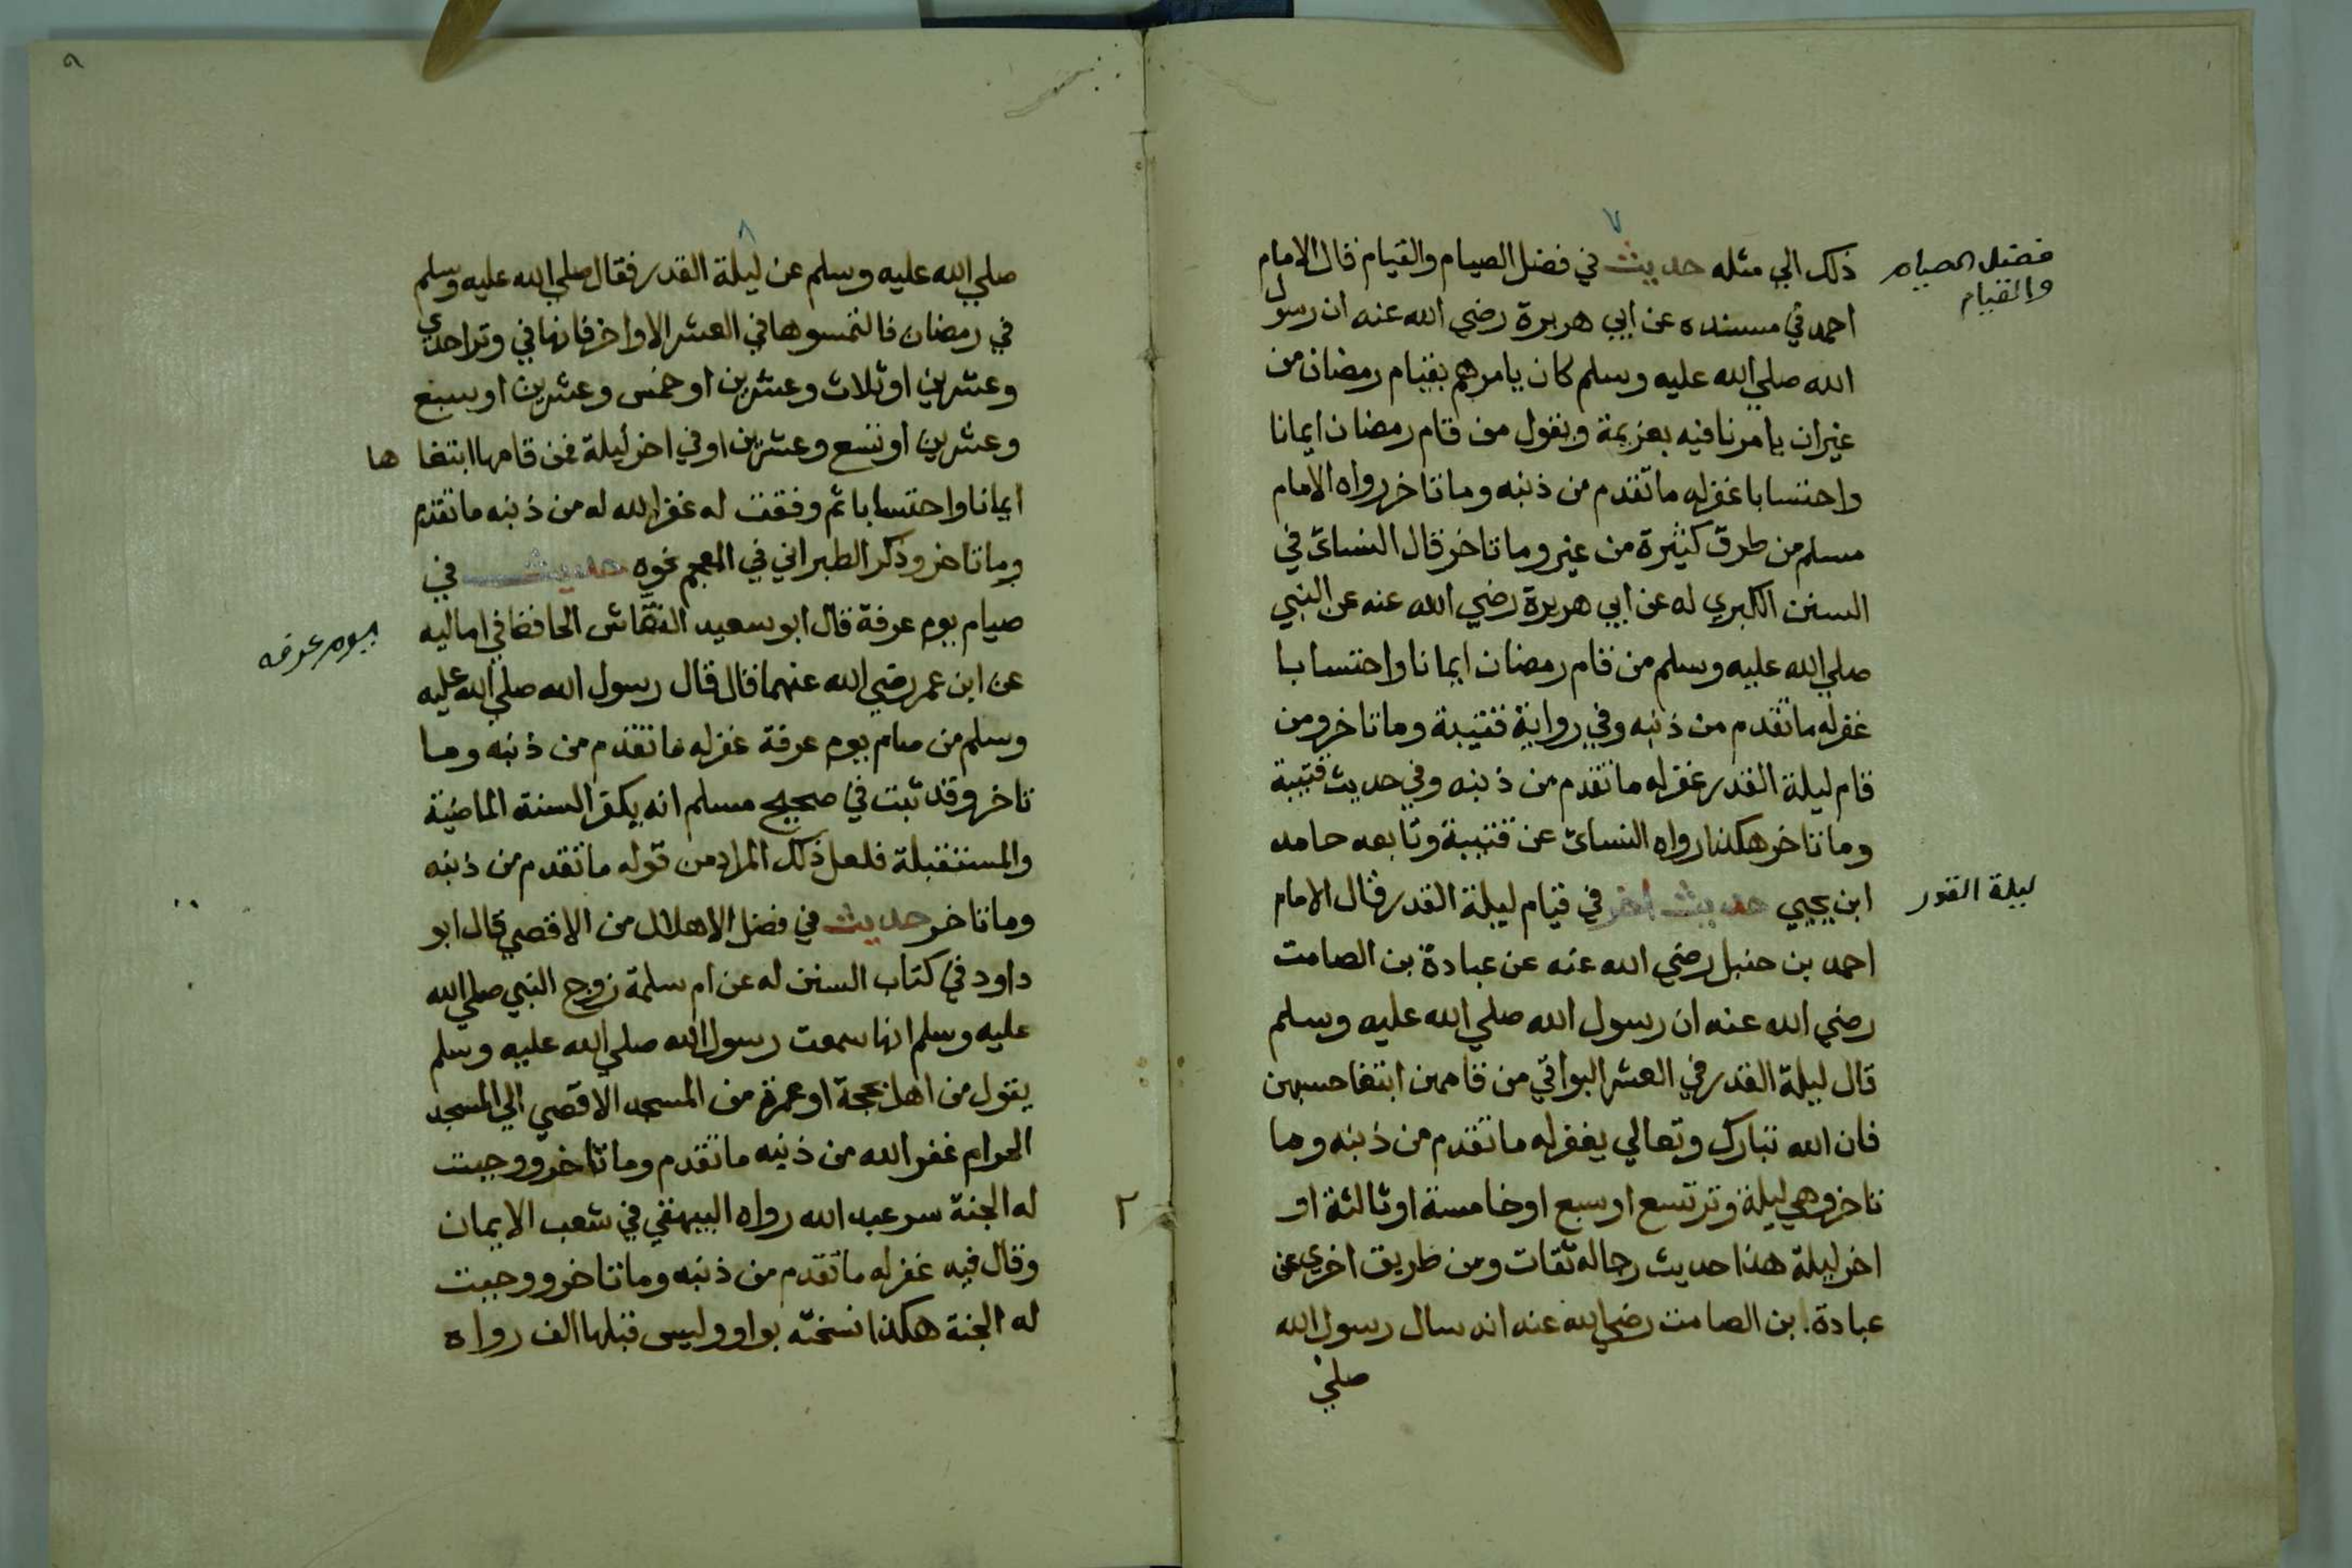 ٧
ذلك الي مثله حديث في فضل الصيام والقيام قال الامام
فضل الصيام
والقيام
احمد في مسنده عن ابي هريرة رضي الله عنه ان رسول
الله صلي الله عليه وسلم كان يامرهم بقيام رمضان من
غير ان يامرنا فيه بعزيمة وبقول من قام رمضان ايمانا
واحتسابا غفر له ما تقدم من ذنبه وما تاخر رواه الامام
مسلم من طرق كثيرة من غير وما تاخر قال النسائ في
السنن الكبري له عن ابي هريرة رضي الله عنه عن النبي
صلي الله عليه وسلم من قام رمضان ايمانا واحتسابا
غفر له ما تقدم من ذنبه وفي رواية قتيبة وما تاخر ومن
قام ليلة القدر غفر له ما تقدم من ذنبه وفي حديث قتيبة
وما تاخر هكذا رواه النسائ عن قتيبة وتابعه حامد
ابن يحيي حديث اخر في قيام ليلة القدر قال الامام
ليلة القدر
احمد بن حنبل رضي الله عنه عن عبادة بن الصامت
رضي الله عنه ان رسول الله صلي الله عليه وسلم
قال ليلة القدر في العشر البواقي من قامهن ابتغا حسبهن
فان الله تبارك وتعالي يغفر له ما تقدم من ذنبه وما
تاخر وهي ليلة وتر تسع او سبع او خامسة او ثالثة او
اخر ليلة هذا حديث رجاله ثقات ومن طريق اخري عن
عبادة ابن الصامت رضي الله عنه انه سال رسول الله
صلي
٩
٨
صلي الله عليه وسلم عن ليلة القدر فقال صلي الله عليه وسلم
في رمضان فالتمسوها في العشر الاواخر فانها في وتر احدي
وعشرين او ثلاث وعشرين او خمس وعشرين او سبع
وعشرين او تسع وعشرين او في اخر ليلة فمن قامها ابتغا ها
ايمانا واحتسابا ثم وفقت له غفر الله له من ذنبه ما تقدم
وما تاخر وذكر الطبراني في المعجم نحوه حديث في
صيام يوم عرفة قال ابو سعيد النقاش الحافظ في اماليه
يوم عرفه
عن ابن عمر رضي الله عنهما قال قال رسول الله صلي الله عليه
وسلم من صام يوم عرفة غفر له ما تقدم من ذنبه وما
تاخر وقد ثبت في صحيح مسلم انه يكفر السنة الماضية
والمستقبلة فلعل ذلك المراد من قوله ما تقدم من ذنبه
وما تاخر حديث في فضل الاهلال من الاقصي قال ابو
داود في كتاب السنن له عن ام سلمة زوج النبي صلي الله
عليه وسلم انها سمعت رسول الله صلي الله عليه وسلم
يقول من اهل بحجة او عمرة من المسجد الاقصي الي المسجد
الحرام غفر الله من ذنبه ما تقدم وما تاخر ووجبت
له الجنة سر عبد الله رواه البيهقي في شعب الايمان
٢
وقال فيه غفر له ما تقدم من ذنبه وما تاخر ووجبت
له الجنة هكذا نسخته بواو وليس قبلها الف رواه